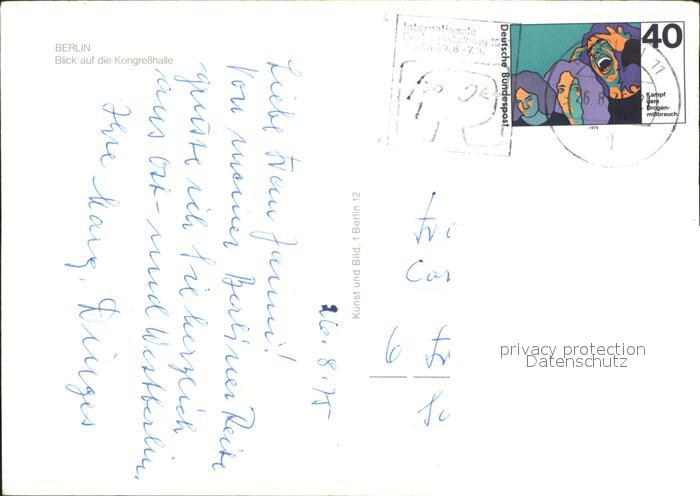 BERLIN
Blick auf die Kongreßhalle
26.8.75
Liebe Frau Janni!
Von meiner Berliner Reise
grüße ich Sie herzlich
aus Ost- und Westberlin.
Ihre Marg. Dinges
Kunst und Bild, 1 Berlin 12
Internationale
29.8.-7.9.
Deutsche Bundespost
40
Kampf
dem
Drogen-
mißbrauch
1975
1
11
Fr
Car
6 Fr
privacy protection
Datenschutz